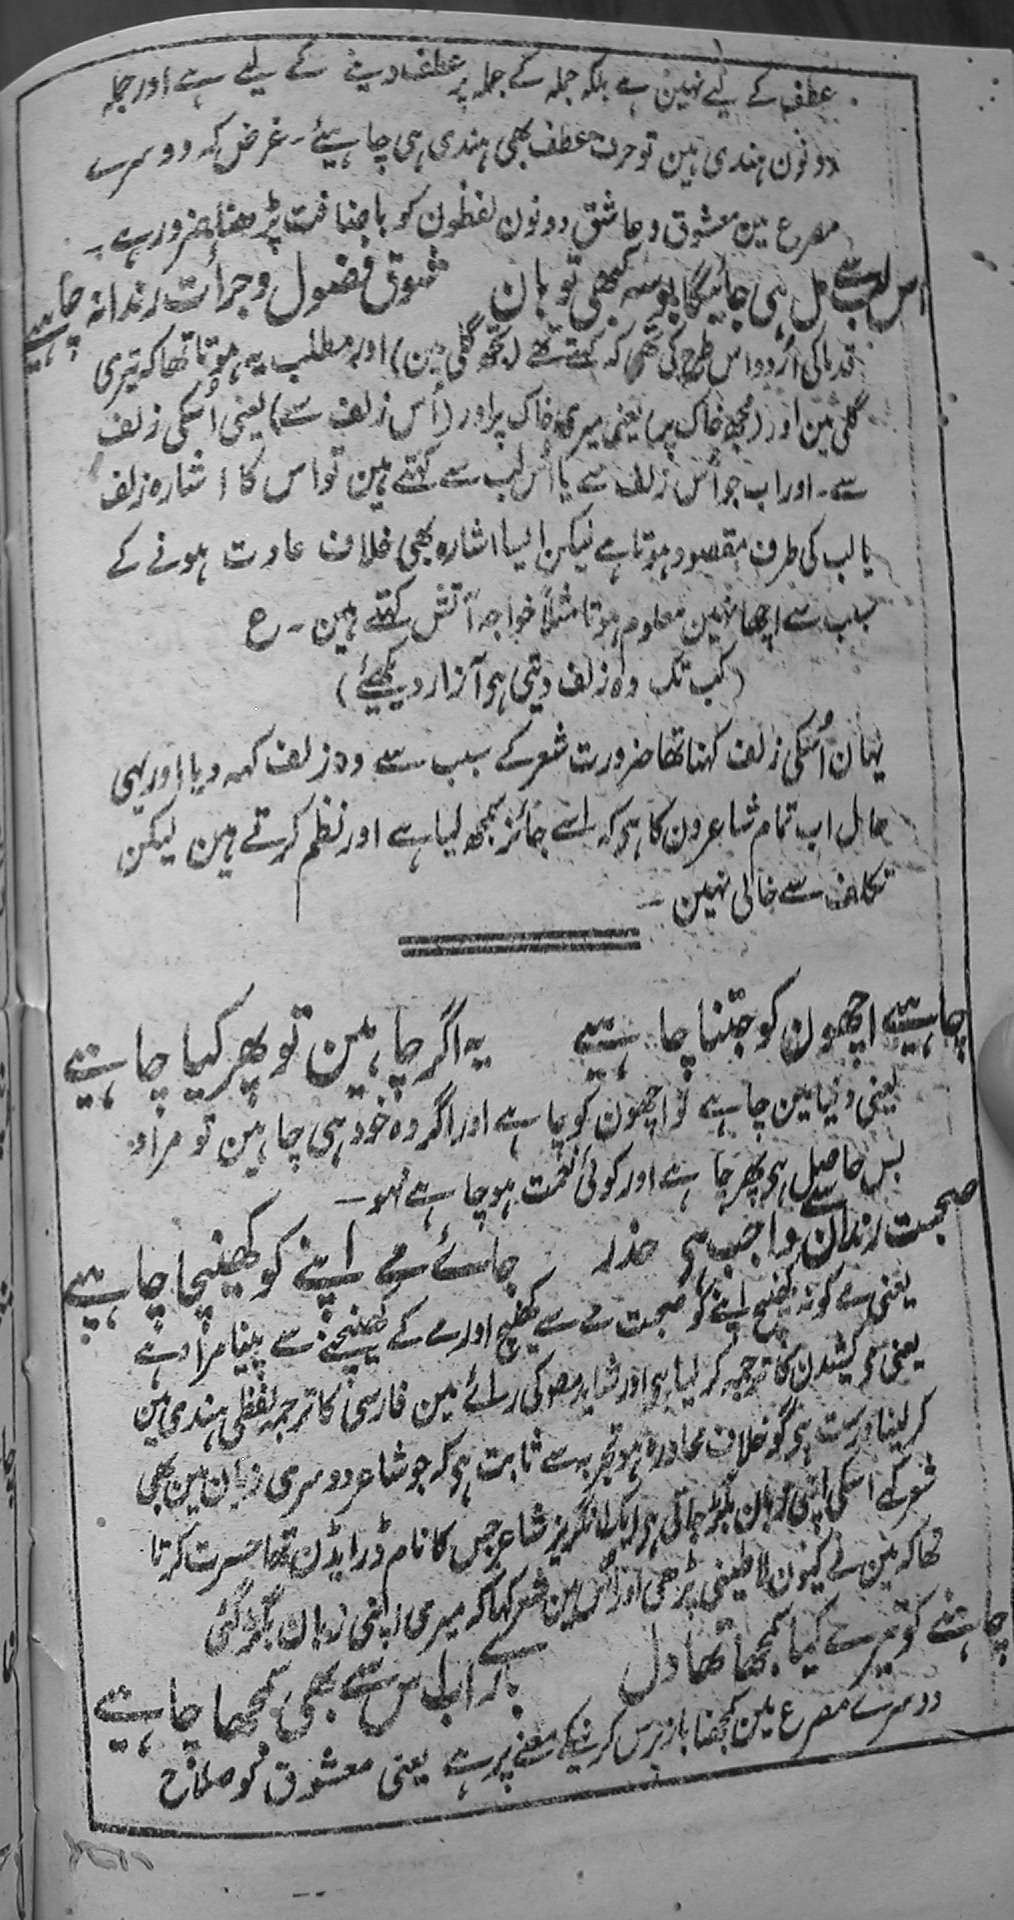 عطف کے لیے نہین ہے بلکہ جملہ کے جملہ پر عطف دینے کے لیے ہے اور جملہ
دونون ہندی ہین تو حرف عطف بھی ہندی ہی چاہیئے۔ غرض کہ دوسرے
مصرع مین معشوق و عاشق دونون لفظون کو باضافت پڑھنا ضرور ہے۔
اس لب سے مل ہی جائیگا بوسہ کبھی تو ہان شوق فضول و جرأت رندانہ چاہیے
قدما کی اُردو اس طرح کی تھی کہ کہتے تھے (تجھ گلی مین) اور مطلب یہ ہوتا تھا کہ تیری
گلی مین اور (مجھ خاک پر) یعنی میری خاک پر اور (اُس زلف سے) یعنی اُسکی زلف
سے۔ اور اب جو اُس زلف سے یا اُس لب سے کہتے ہین تو اس کا اشارہ زلف
یا لب کی طرف مقصود ہوتا ہے لیکن ایسا اشارہ بھی خلاف عادت ہونے کے
سبب سے اچھا نہین معلوم ہوتا مثلاً خواجہ آتش کہتے ہین۔ ع
(کب تک وہ زلف دیتی ہی آزار دیکھیے)
یہان اُسکی زلف کہنا تھا ضرورت شعر کے سبب سے وہ زلف کہہ دیا اور یہی
حال اب تمام شاعرون کا ہی کہ اسے جائز سمجھ لیا ہے اور نظم کرتے ہین لیکن
تکلف سے خالی نہین۔
چاہیے اچھون کو جتنا چاہیے یہ اگر چاہین تو پھر کیا چاہیے
یعنی دنیا مین چاہے تو اچھون کو چاہے اور اگر وہ خود ہی چاہین تو مراد
بس حاصل ہی پھر چاہے اور کوئی نعمت ہو چاہے نہو۔
صحبت رندان سے واجب ہی حذر جائے مے اپنے کو کھینچا چاہیے
یعنی مے کو نہ کھینچ اپنے کو صحبت مے سے کھینچ اور مے کے کھینچنے سے پینا مراد ہے
یعنی می کشیدن کا ترجمہ کر لیا ہی اور شاید مصہ کی رائے مین فارسی کا ترجمہ لفظی ہندی مین
کر لینا درست ہی گو خلاف محاورہ ہو تجربہ سے ثابت ہی کہ جو شاعر دوسری زبان مین بھی
شعر کہے اسکی اپنی زبان بگڑ جاتی ہی ایک انگریز شاعر جس کا نام ڈرایڈن تھا حسرت کرتا
تھا کہ مین نے کیون لاطینی پڑھی اور اُس مین شعر کہا کہ میری اپنی زبان بگڑ گئی
چاہنے کو تیرے کیا سمجھا تھا دل بارے اب اس سے بھی سمجھا چاہیے
دوسرے مصرع مین سمجھنا باز پرس کرنیکے معنے پر ہے یعنی معشوق کو صلاح